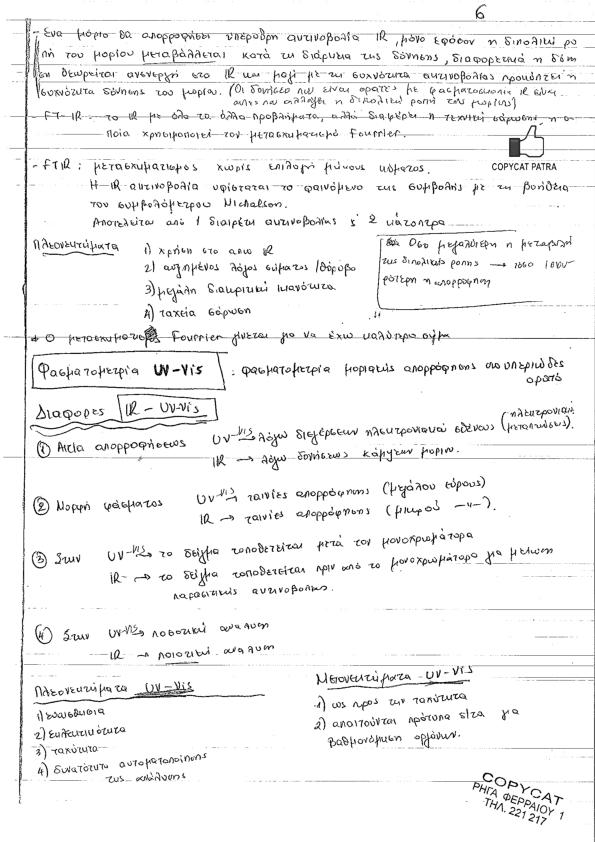 6
- Ένα μόριο θα απορροφήσει υπέρυθρη ακτινοβολία IR, μόνο εφόσον η διπολική ρο
πή του μορίου μεταβάλλεται κατά τη διάρκεια της δόνησης, διαφορετικά η δόνη
ση θεωρείται ανενεργή στο IR και μαζί με τη συχνότητα ακτινοβολίας προκύπτει η
συχνότητα δόνησης του μορίου. (Οι δονήσεις που είναι ορατές με φασματοσκοπία IR είναι
αυτές που αλλάζει η διπολική ροπή του μορίου)
FT-IR: το IR με όλα τα άλλα προβλήματα, αλλά διαφέρει η τεχνική σάρωσης η ο
ποία χρησιμοποιεί τον μετασχηματισμό Fourrier.
COPYCAT PATRA
- FTIR: μετασχηματισμός χωρίς επιλογή μήκους κύματος.
Η IR ακτινοβολία υφίσταται το φαινόμενο της συμβολής με τη βοήθεια
του συμβολόμετρου Michalson.
Αποτελείται από 1 διαιρέτη ακτινοβολίας & 2 κάτοπτρα
Πλεονεκτήματα
1) χρήση στο άπω IR
2) αυξημένος λόγος σήματος/θόρυβο
3) μεγάλη διακριτική ικανότητα
4) ταχεία σάρωση
Όσο μεγαλύτερη η μεταβολή
της διπολικής ροπής → τόσο ισχυ-
ρότερη η απορρόφηση
* Ο μετασχηματισμός Fourrier γίνεται για να έχω καλύτερο σήμα
Φασματομετρία UV-Vis : φασματομετρία μοριακής απορρόφησης στο υπεριώδες
ορατό
Διαφορές IR - UV-Vis
① Αιτία απορροφήσεως UV-Vis → λόγω διεγέρσεων ηλεκτρονιακού σθένους (ηλεκτρονιακή
μεταπτώσεις).
IR → λόγω δονήσεως κάμψεων μορίων.
② Μορφή φάσματος UV-Vis → ταινίες απορρόφησης (μεγάλου εύρους)
IR → ταινίες απορρόφησης (μικρού -"-).
③ Στην UV-Vis → το δείγμα τοποθετείται μετά τον μονοχρωμάτορα
IR → το δείγμα τοποθετείται πριν από το μονοχρωμάτορα για μείωση
παρασιτικής ακτινοβολίας.
④ Στην UV-Vis → ποσοτική ανάλυση
IR → ποιοτική ανάλυση
Πλεονεκτήματα UV-Vis
1) ευαισθησία
2) εκλεκτικότητα
3) ταχύτητα
4) δυνατότητα αυτοματοποίησης
της ανάλυσης
Μειονεκτήματα UV-Vis
1) ως προς την ταχύτητα
2) απαιτούνται πρότυπα για
βαθμονόμηση οργάνων.
COPYCAT
ΡΗΓΑ ΦΕΡΡΑΙΟΥ 1
ΤΗΛ. 221 217